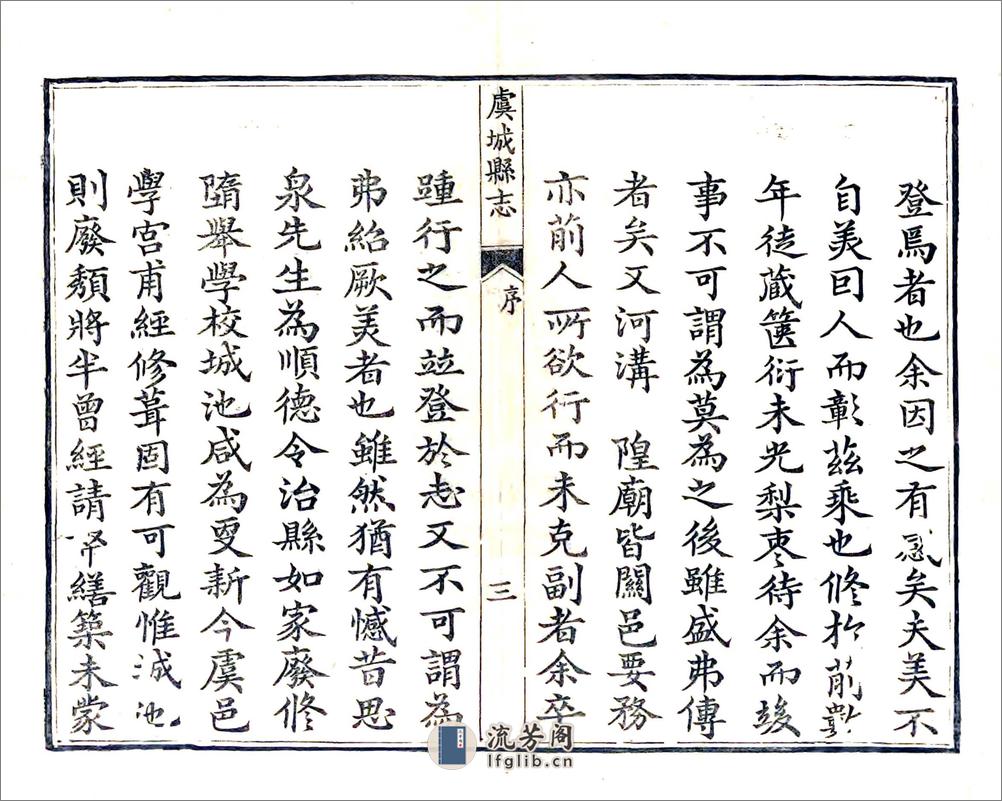 登焉者也余因之有感矣夫美不
自美囙人而彰茲乘也修扵前數
年徒藏篋衍未光梨棗待余而竣
事不可謂為莫為之後雖盛弗傳
者矣又河溝　隍廟皆關邑要務
亦前人所欲行而未克副者余卒
虞城縣志
序
三
踵行之而竝登於志又不可謂為
弗紹厥美者也雖然猶有憾昔思
泉先生為順德令治縣如家廢修
隋舉學校城池咸為更新今虞邑
學宮甫經修葺固有可觀惟城池
則廢頹將半曾經請帑繕築未蒙
流芳阁
lfglib.cn